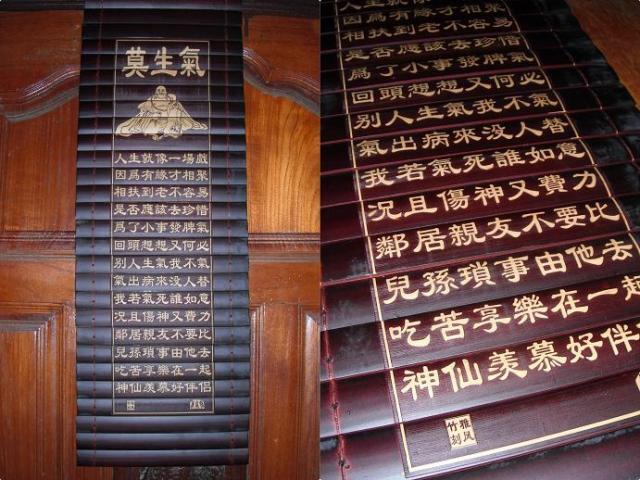 莫生氣
人生就像一場戲
因爲有緣才相聚
相扶到老不容易
是否應該去珍惜
爲了小事發脾氣
回頭想想又何必
別人生氣我不氣
氣出病來没人替
我若氣死誰如意
況且傷神又費力
鄰居親友不要比
兒孫瑣事由他去
吃苦享樂在一起
神仙羨慕好伴侶
因爲有緣才相聚
相扶到老不容易
是否應該去珍惜
爲了小事發脾氣
回頭想想又何必
別人生氣我不氣
氣出病來没人替
我若氣死誰如意
況且傷神又費力
鄰居親友不要比
兒孫瑣事由他去
吃苦享樂在一起
神仙羨慕好伴
雅风
竹刻